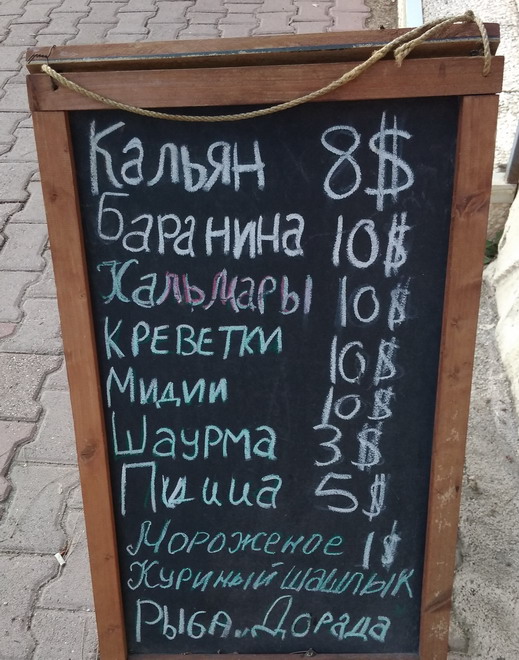 Кальян 8$
Баранина 10$
Кальмары 10$
КРЕВЕТКИ 10$
Мидии 10$
Шаурма 3$
Пицца 5$
Мороженое 1$
Куриный шашлык
РЫБА.. Дорада